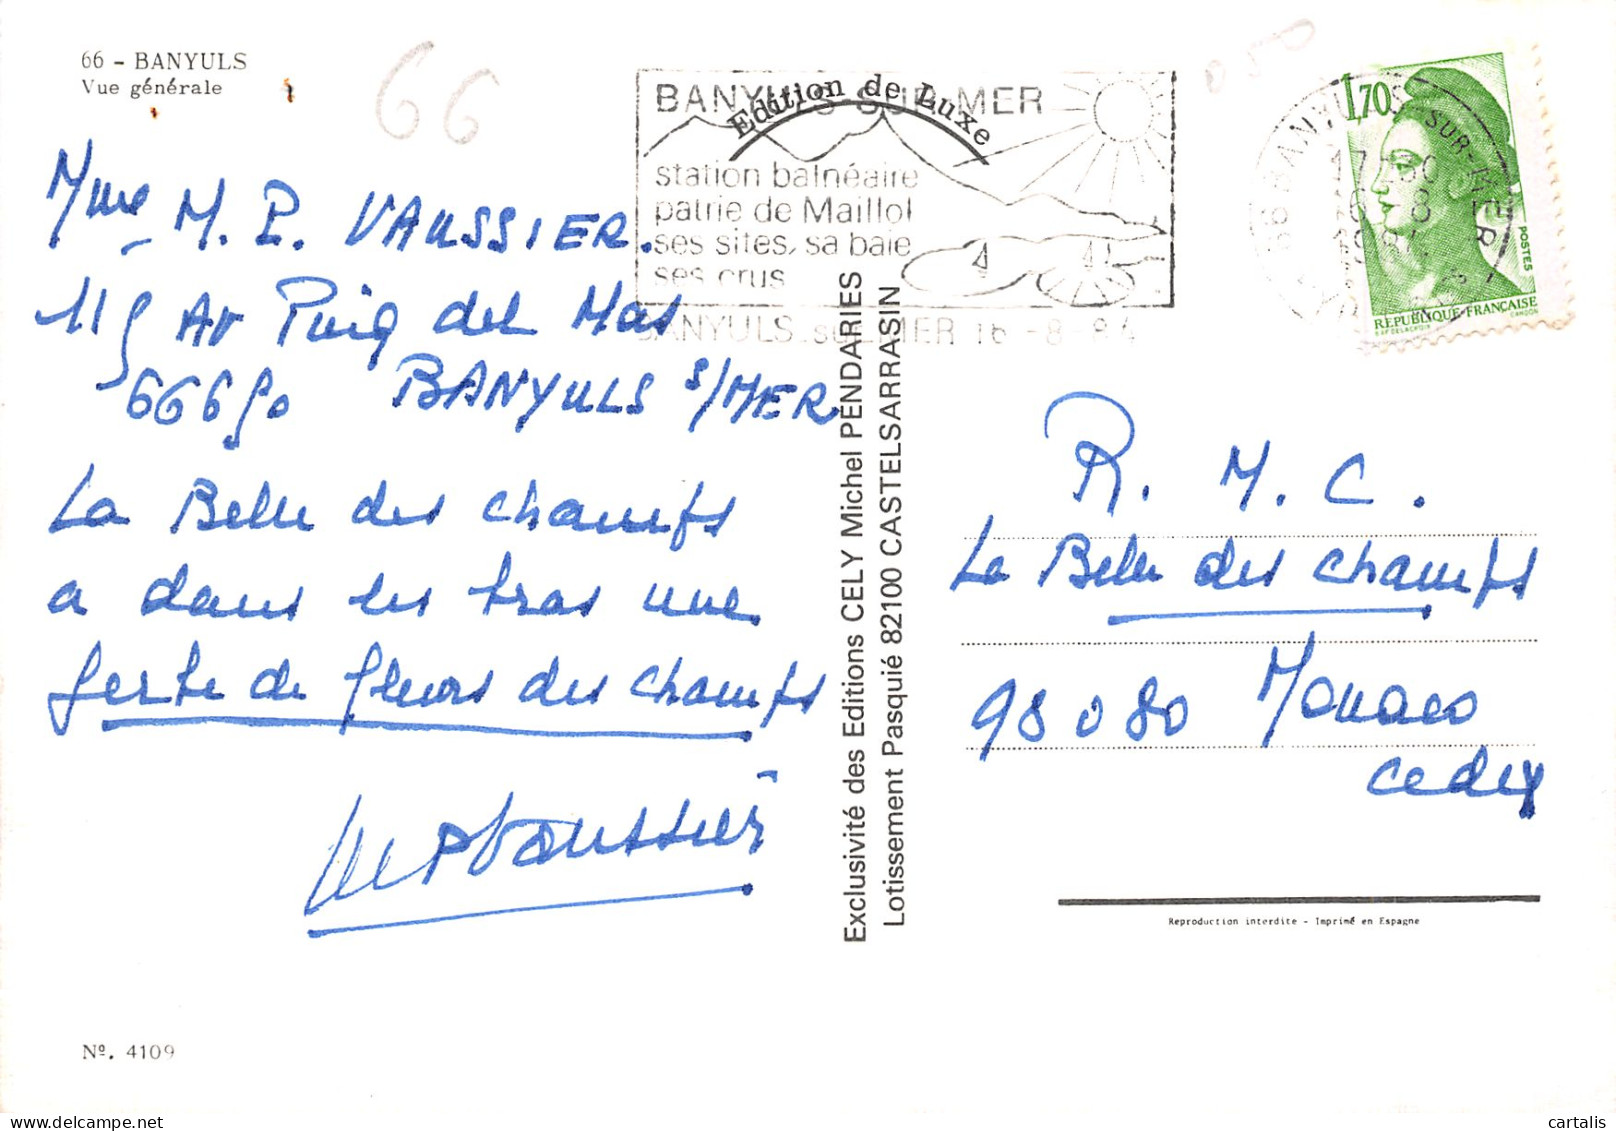 66 - BANYULS
Vue générale
66
Mme M. P. VAUSSIER.
115 Av Puig del Mas
66650 BANYULS S/MER
La Belle des champs
a dans les bras une
gerbe de fleurs des champs
Vaussier
Nº. 4109
BANYULS SUR MER
Edition de Luxe
station balnéaire
patrie de Maillol
ses sites, sa baie
ses crus
BANYULS sur MER 16 -8-84
Exclusivité des Editions CELY Michel PENDARIES
Lotissement Pasquié 82100 CASTELSARRASIN
66 BANYULS-SUR-MER
1,70
POSTES
REPUBLIQUE FRANÇAISE
GANDON
R. M. C.
La Belle des champs
98080 Monaco
cedex
Reproduction interdite - Imprimé en Espagne
cartalis